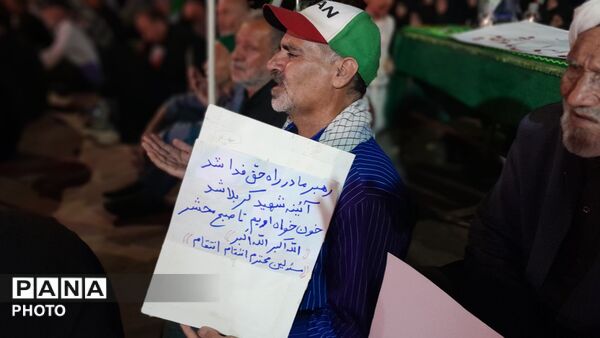 IRAN
رهبر ما در راه حق فدا شد
آئینه شهید کربلا شد
خون خواه اوییم تا صبح محشر
الله اکبر الله اکبر
مسئولین محترم انتقام انتقام
PANA
PHOTO